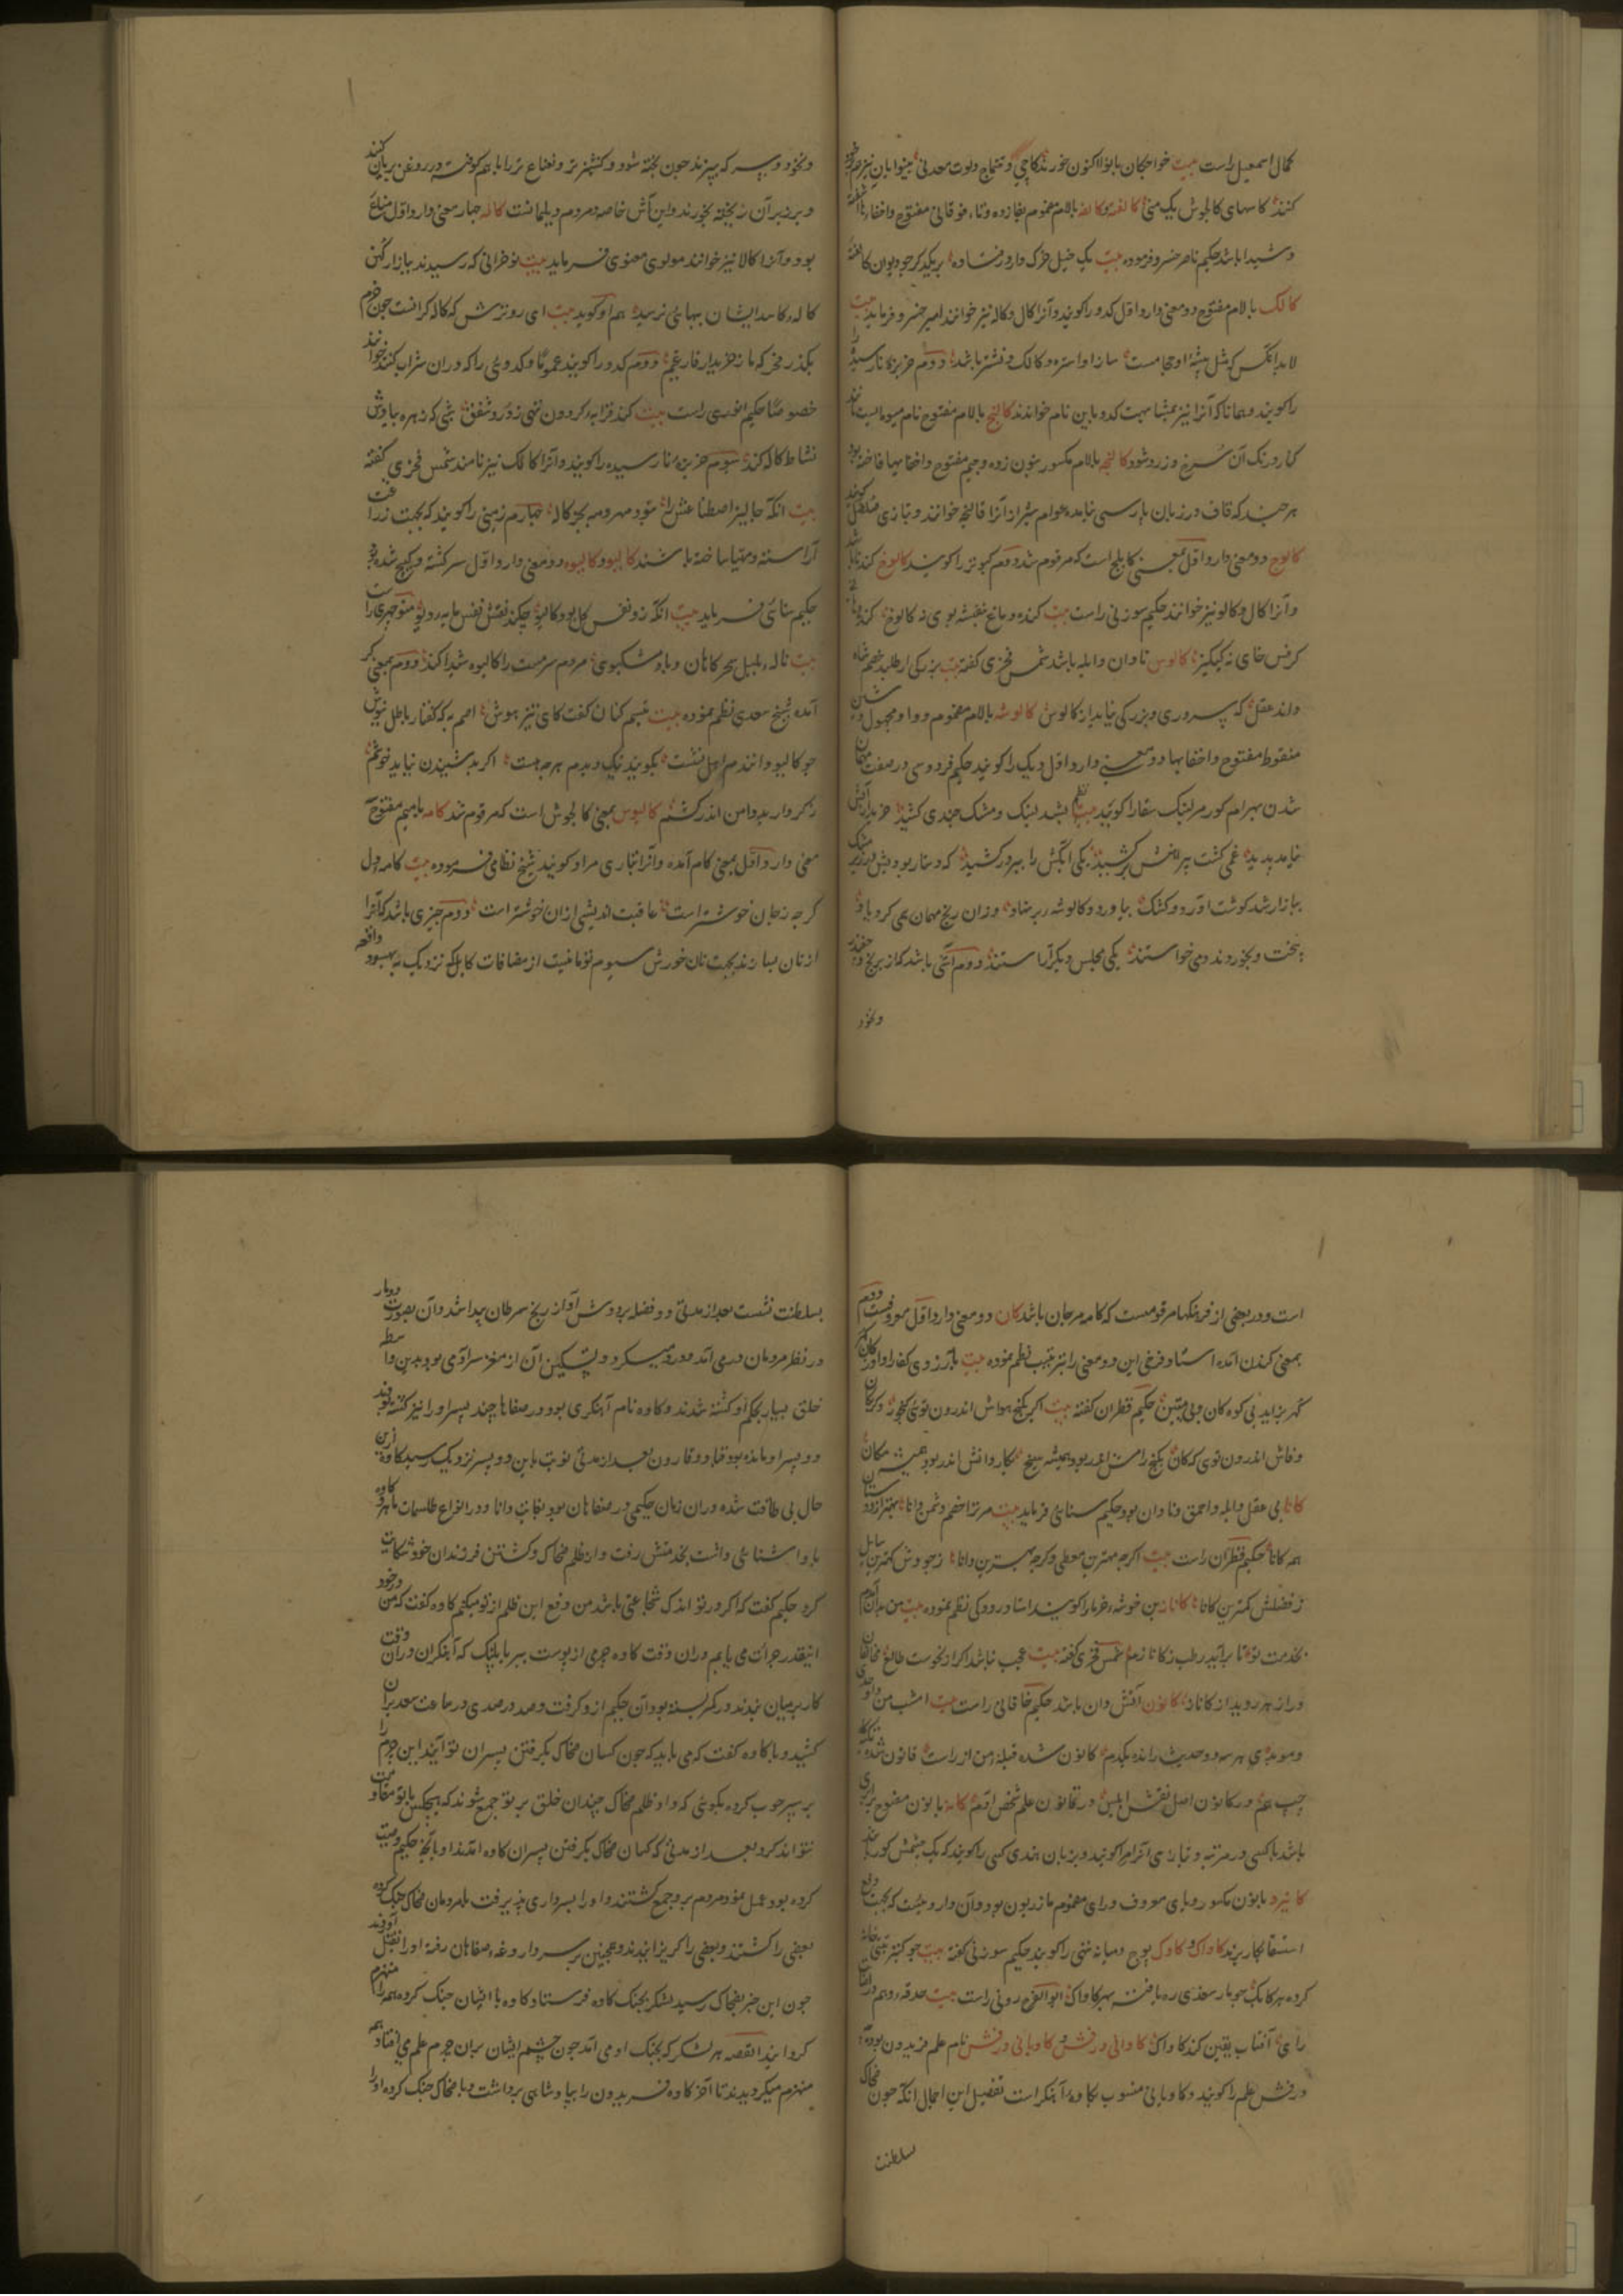 کمال اسمعیل راست بیت خواجکان بابولاکنون خورند کاچی و تتماج ولوت معدنی بینوایان نیز هم
کنند کاسهای کالجوش یک منی کالفته و کالفه بالام مضموم بفا زده وتاء فوقانی مفتوح واخفاء ها آشفته
وشیدا باشد حکیم ناصر خسرو فرموده بیت یک خیل خرک وار در فتاده بر یکدکر چو دیوان کالفته
کالک بالام مفتوح دو معنی دارد اول کدو را کویند وآنرا کال وکاله نیز خوانند امیر خسرو فرماید بیت
لابد انکس که مثل پیشهٔ او حجامست ساز او استره و کالک و نشتر باشد دوم خربزهٔ نارسیده را
را کویند وهمانا که آنرا نیز بمشابهت کدو باین نام خوانند کالنج بالام مفتوح نام میوه ایست مانند
کنار ورنک آن سرخ و زرد شود کالنجه بالام مکسور بنون زده وجیم مفتوح واخفا بها فاخته بود
هرچند که قاف در زبان پارسی نیامده عوام شیراز آنرا قالنجه خوانند وبتازی صلصل کویند
کالوج دو معنی دارد اول بمعنی کابلج است که مرقوم شد دوم کبوتر را کویند کالوخ کندنا باشد
وآنرا کال وکالو نیز خوانند حکیم سوزنی راست بیت کنده دماغ بنفشه بوی نه کالوخ کنده دهانی
کرفس خای نه کیکیز کالوس نادان وابله باشد شمس فخری کفته بیت بزرکی ار طلبد خصم شاه
داند عقل که سروری وبزرکی نیاید از کالوس کالوشه بالام مضموم وواو مجهول وشین
منقوطه مفتوح واخفا بها دو معنی دارد اول دیک را کویند حکیم فردوسی در صفت مهمان
شدن بهرام کور مر لنبک سقا را کوید نظم بیت بشد لنبک ومشک چندی کشید خریدار آبش
نیامد پدید غمی کشت پیراهنش برکشید یکی آبکش را ببر در کشید که دستار بودیش در زیر مشک
ببازار شد کوشت آورد وکشک بیاورد وکالوشه بر بر نهاد وزان رنج مهمان همی کرد یاد
بپخت وبخوردند ومی خواستند یکی مجلس دیکر آراستند دوم آشی باشد که از برنج وچغندر
ونخود
ونخود وسرکه بپزند چون پخته شود وکشنیز تر ونعناع تر را با هم کوفته در روغن بریان کنند
وبر زبر آن ریخته بخورند واین آش خاصه مردم دیلمانست کاله چهار معنی دارد اول متاع
بود وآنرا کالا نیز خوانند مولوی معنوی فرماید بیت نوخرانی که رسیدند ببازار کهن
کالهٔ کاسد ایشان ببهائی نرسید هم او کوید بیت ای روترش که کاله کرانست چون خرم
بکذر مخر که ما ز خریدار فارغیم دوم کدو را کویند عموماً وکدوئی را که در آن شراب کنند خوانند
خصوصاً حکیم انوری راست بیت کند قرابهٔ کردون تهی ز درد شفق شبی که زهره بیادش
نشاط کاله کند سوم خربزهٔ نارسیده را کویند وآنرا کالک نیز نامند شمس فخری کفته
بیت انکه جالیز اصطناعش را نبود مهر ومه بجز کاله چهارم زمینی را کویند که بجهت زراعت
آراسته ومهیا ساخته باشند کالیو وکالیوه دو معنی دارد اول سرکشته وکیج شده بود
حکیم سنائی فرماید بیت انکه زو نفس کل بود کالیو چکند نقش نفس مایه دیو منوچهری راست
بیت نالهٔ بلبل سحرکاهان وباد مشکبوی مردم سرمست را کالیوه وشیدا کند دوم بمعنی کر
آمده شیخ سعدی نظم نموده بیت تبسم کنان کفت کای تیز هوش اصم به که کفتار باطل نیوش
چو کالیو دانندم اهل نشست بکویند نیک وبدم هرچه هست اکر بد شنیدن نیاید خوشم
ز کردار بد دامن اندر کشم کالیوس بمعنی کالجوش است که مرقوم شد کامه بامیم مفتوح سه
معنی دارد اول بمعنی کام آمده وآنرا بتازی مراد کویند شیخ نظامی فرموده بیت کامه دل
کرچه ز جان خوشتر است عاقبت اندیشی ازان خوشتر است دوم چیزی باشد که آنرا
از نان بسازند بجهت نان خورش سیوم نومانیست از مضافات کابل که نزدیک به بهسود واقعه
است ودر بعضی از فرهنکها مرقومست که کامه مرجان باشد کان دو معنی دارد اول معروفست دوم
بمعنی کندن آمده استاد فرخی این دو معنی را بترتیب نظم نموده بیت بآرزوی کف راد او ز کان کهر
کهر برآید بی کوه کان وبی میتین حکیم قطران کفته بیت اکر بکنج هواش اندرون توئی کنجور وکر بکان
وفاش اندرون توی که کان بکنج رامش اندر بود همیشه سیخ بکار دانش اندر بود همیشه مکان
کانا بی عقل وابله واحمق ونادان بود حکیم سنائی فرماید بیت مر ترا خصم ودشمن دانا بهتر از دوستان
همه کانا حکیم قطران راست بیت اکرچه مهترین معطی وکرچه بهترین دانا ز جودش کمترین سایل
ز فضلش کمترین کانا کاناز بن خوشهٔ خرما را کویند استاد رودکی نظم نموده بیت من بدان آمدم
بخدمت تو تا برآید رطب ز کانازم شمس فخری کفته بیت عجب نباشد اکر از نحوست طالع مخالفان
ورا زهر روید از کاناز کانون آتش دان باشد حکیم خاقانی راست بیت امشب من واوحدی
ومؤیدی هر سه وحدیث رانده یکدم کانون شده قبلهٔ من از راست قانون شده تکیه‌کاه
چپ هم در کانون اصل نقش ابلیس در قانون علم شخص آدم کانه بانون مفتوح برابری
باشد باکسی در مرتبه وبتازی آنرا کویند وبزبان هندی کسی را کویند که یک چشمش کور باشد
کانیرو بانون مکسور ویای معروف ورای مضموم مازریون بود وآن داروئیست که بجهت دفع
استسقا بکار برند کاواک وکاوک پوچ ومیانه تهی را کویند حکیم سوزنی کفته بیت چو کنبر تهی خانه
کرده هر کابک چو بار سغذی ره یافته بهر کاواک ابوالفرج رونی راست بیت حدقهٔ وهم در اشاعت
رای آفتاب یقین کند کاواک کاوانی درفش وکاویانی درفش نام علم فریدون بوده
درفش علم را کویند وکاویانی منسوب بکاوهٔ آهنکر است تفصیل این اجمال آنکه چون ضحاک
سلطنت
بسلطنت نشست بعد از مدتی دو فضله بر دوش او از ریح سرطان پیدا شد وآن بصورت دو مار
در نظر مردمان درمی آمد ودرد میکرد وتسکین آن از مغز سر آدمی بود بدین واسطه
خلق بسیار بحکم او کشته شدند وکاوه نام آهنکری بود در صفاهان چند پسر او را نیز کشته بودند
دو پسر او مانده بود قباد وقارون بعد از مدتی نوبت باین دو پسر نزدیک رسید کاوه ازین
حال بی طاقت شده دران زمان حکیمی در صفاهان بود بغایت دانا ودر انواع طلسمات ماهر کاوه
با او آشنائی داشت بخدمتش رفت واز ظلم ضحاک وکشتن فرزندان خود شکایت
کرد حکیم کفت که اکر در تو اندک شجاعتی باشد من دفع این ظلم از تو میکنم کاوه کفت که من در خود
اینقدر جرأت می یابم دران وقت کاوه چرمی از پوست ببر یا پلنک که آهنکران در آن وقت
کار بر میان بندند در کمر بسته بود آن حکیم ازو کرفت وصد در صدی در ساعت سعد بران
کشید وبا کاوه کفت که می باید که چون کسان ضحاک بکرفتن پسران تو آیند این چرم را
بر سر چوب کرده بکوئی که داد از ظلم ضحاک چندان خلق بر تو جمع شوند که هیچکس با تو مقاومت
نتواند کرد بعد از مدتی که کسان ضحاک بکرفتن پسران کاوه آمدند او بآنچه حکیم وصیت
کرده بود عمل نمود مردم برو جمع کشتند واو را بسرداری پذیرفت با مردمان ضحاک جنک کرده
بعضی را کشتند وبعضی را کریزانیدند وهمچنین بر سر داروغهٔ صفاهان رفته او را بقتل آوردند
چون این خبر بضحاک رسید لشکر بجنک کاوه فرستاد وکاوه با ایشان جنک کرده همه را منهزم
کردانید القصه هر لشکر که بجنک او می آمد چون چشم ایشان بران چرم علم می افتاد همه
منهزم میکردیدند تا آخر کاوه فریدون را بپادشاهی برداشت وبا ضحاک جنک کرده او را